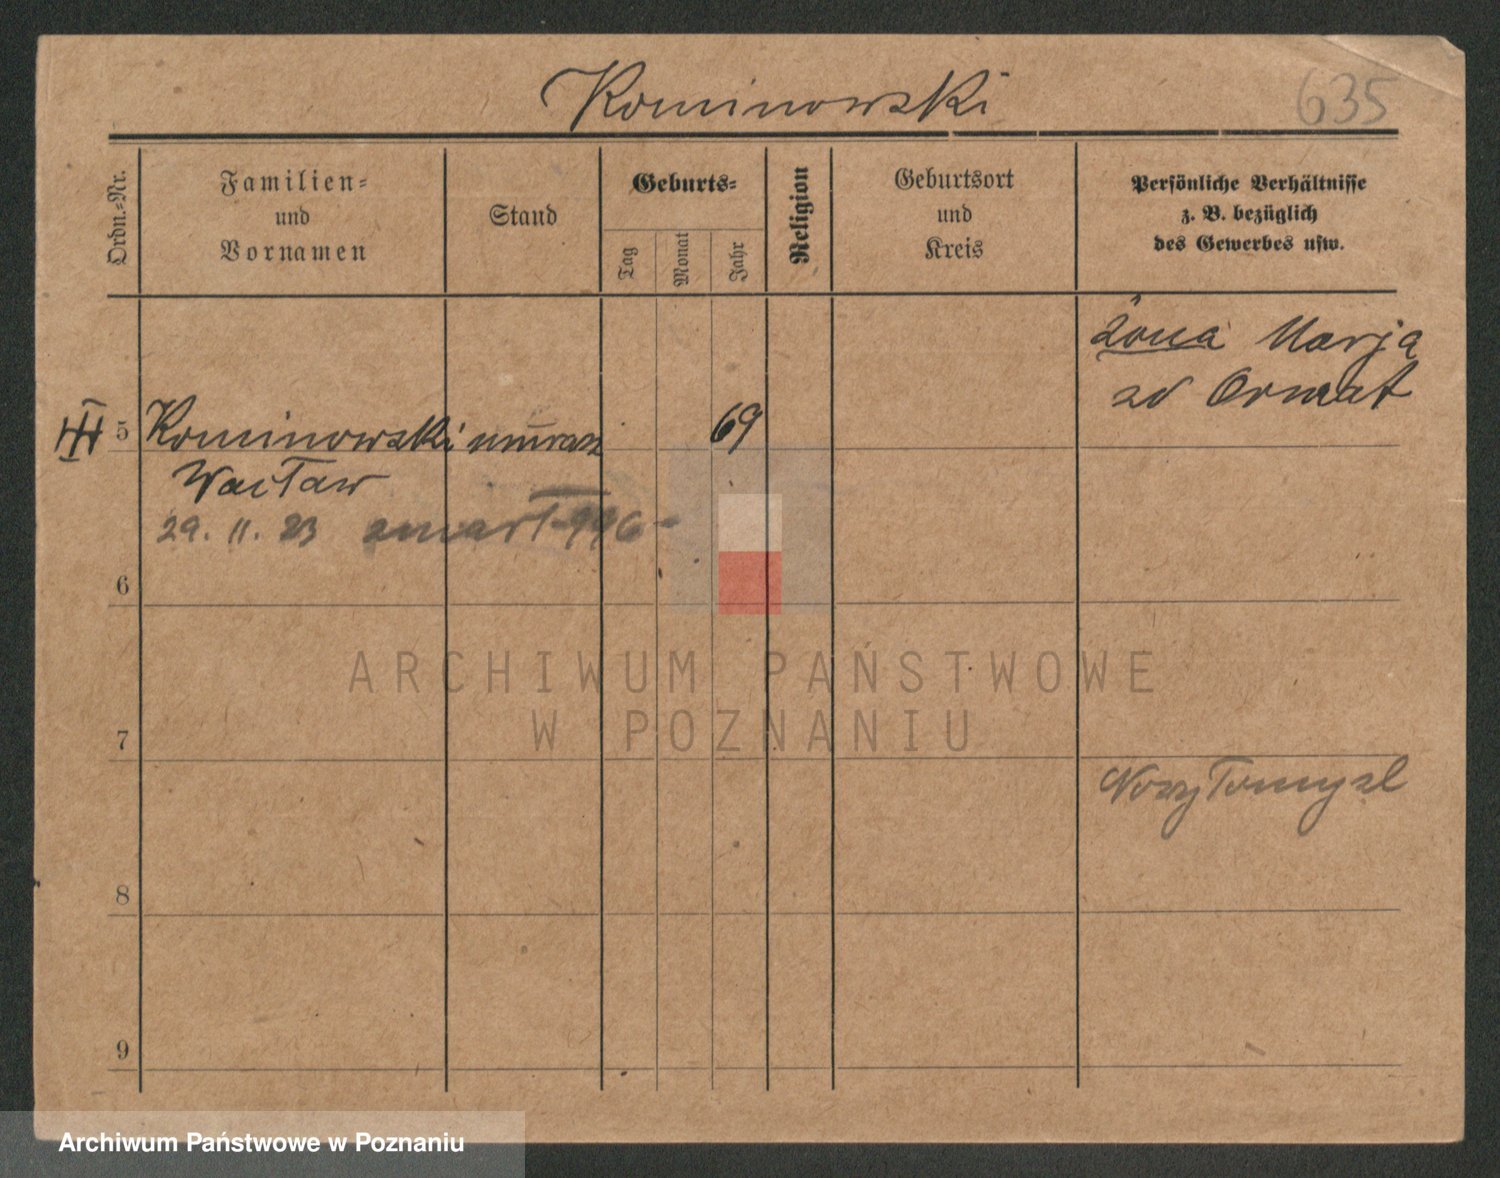 Kominowski
635
Ordn.=Nr.
Familien=
und
Vornamen
Stand
Geburts=
Tag
Monat
Jahr
Religion
Geburtsort
und
Kreis
Persönliche Verhältnisse
z. B. bezüglich
des Gewerbes usw.
żona Marja
zd Ornat
III 5 Kominowski murarz 69
Wacław
29. 11. 23 zmarł 996
6
ARCHIWUM PAŃSTWOWE
W POZNANIU
7
Nowy Tomyśl
8
9
Archiwum Państwowe w Poznaniu